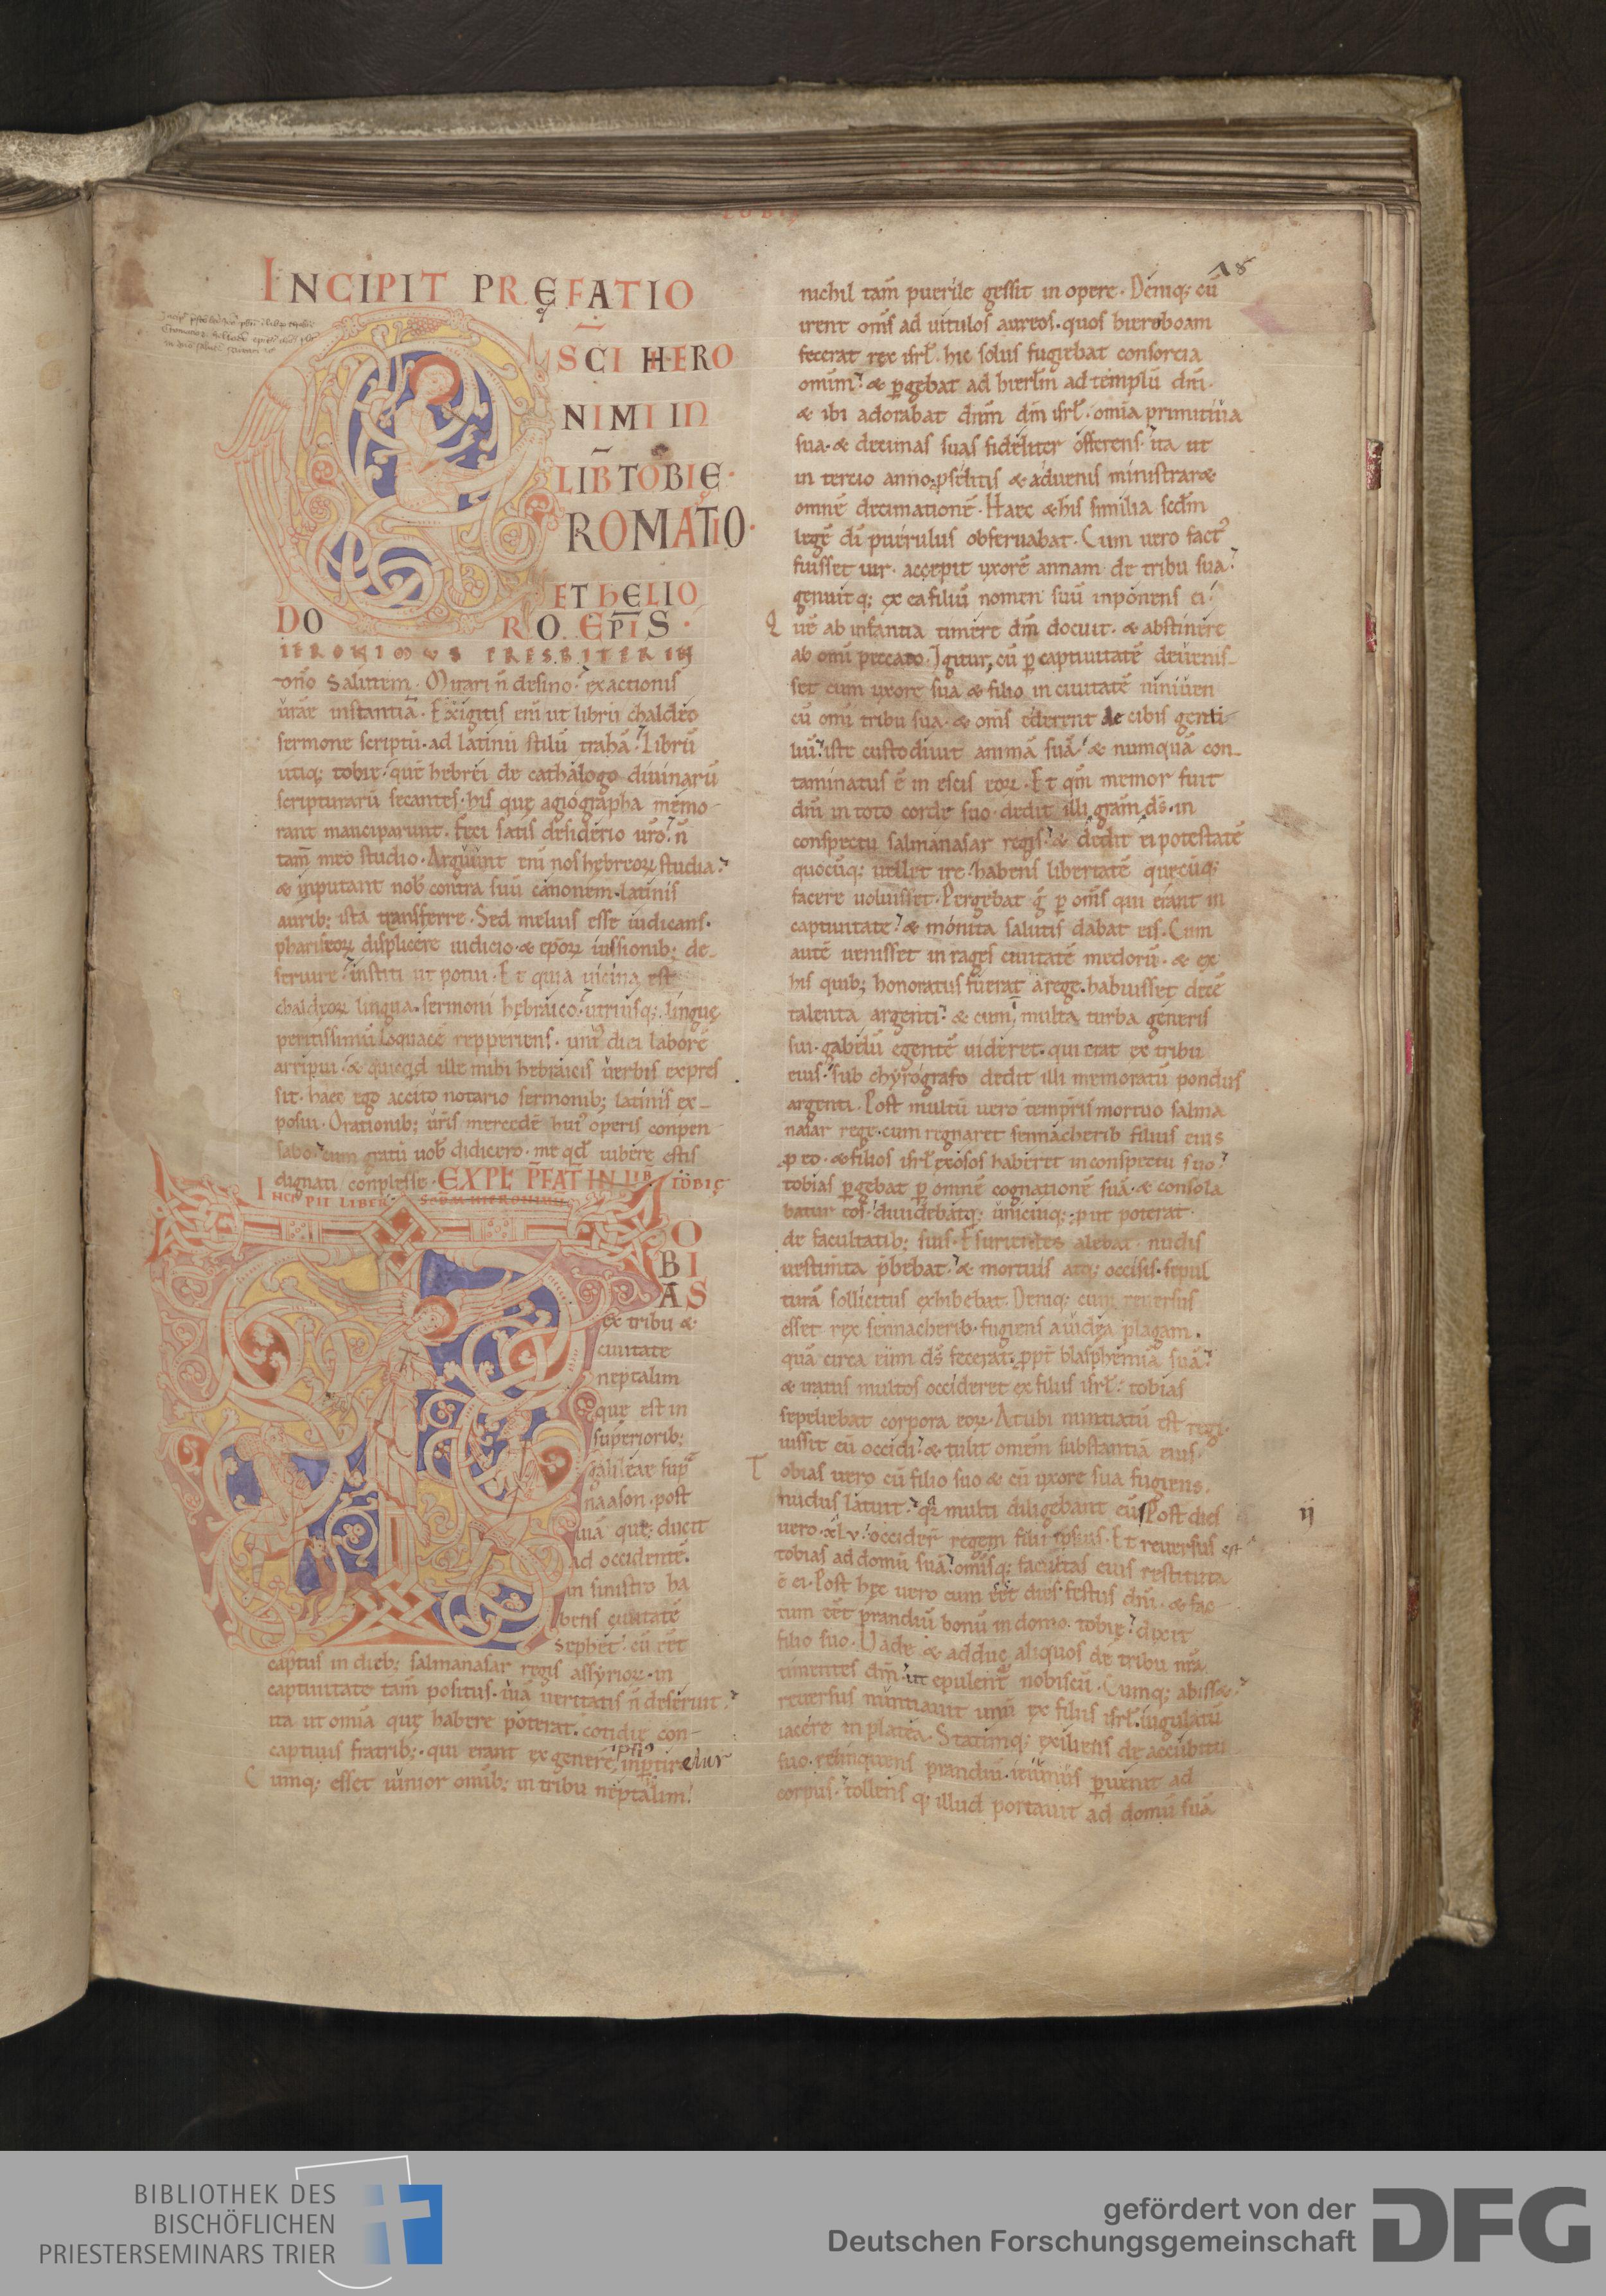 TOBIĘ
78
INCIPIT PRĘFATIO
SC̄I HERO
NIMI IN
LIB̄ TOBIE·
ROMATIO·
ET HELIO
DO RO EP̄IS·
IERONIMUS PRESBITER IN
dn̄o Salutem. Mirari n̄ desino exactionis
ur̄ae instantiā. Exigitis eni ut librū chaldeo
sermone scriptū· ad latinū stilū trahā. Librū
utiq; tobię· quē hebrei de cathalogo diuinarū
scripturarū secantes· his quę agiographa memo-
rant manciparunt. Feci satis desiderio ur̄o· n̄
tam̄ meo studio. Arguunt eni nos hebreoꝝ studia·
& inputant nob̄ contra suū canonem· latinis
aurib; ista transferre. Sed melius esse iudicans·
phariseoꝝ displicere iudicio· & ep̄oꝝ iussionib; de-
seruire· institi ut potui. Et quia uicina est
chaldeoꝝ lingua· sermoni hebraico· utriusq; linguę
peritissimū loquacē repperiens· uni' diei laborē
arripui· & quicqd ille mihi hebraicis uerbis expres
sit· haec ego accito notario sermonib; latinis ex-
posui. Orationib; ur̄is mercedē hui' operis conpen
sabo· cum gratū uob̄ didicero· me qd̄ iubere estis
dignati conplesse· EXPL̄ P̄FAT̄ IN LIB̄ TOBIĘ
INCIPIT LIBER SCDM HIERONIMU
TO
BI
AS
ex tribu &
ciuitate
neptalim
que est in
superiorib;
galileae sup̄
naason· post
uiā quę ducit
ad occidentē·
in sinistro ha
bens ciuitatē
sephet· cū eēt
captus in dieb; salmanasar regis assyrioꝝ· in
captiuitate tam̄ positus· uiā ueritatis n̄ deseruit·
ita ut om̄ia quę habere poterat· cotidie con-
captiuis fratrib;· qui erant ex genere ipsi' inꝑtiretur
Cumq; esset iunior om̄ib; in tribu neptalim·
nichil tam̄ puerile gessit in opere. Deniq; cū
irent om̄s ad uitulos aureos· quos hieroboam
fecerat rex isrl̄· hic solus fugiebat consorcia
omium· & ꝑgebat ad hierl̄m ad templū dn̄i·
& ibi adorabat dn̄m dm̄ isrl̄· om̄ia primitiua
sua· & decimas suas fideliter offerens· ita ut
in tercio anno· ꝓselitis & aduenis ministraret
omnē decimationē. Haec & his similia scdm̄
legē dī puerulus obseruabat. Cum uero fact'
fuisset uir· accepit uxorē annam de tribu sua·
genuitq; ex ea filiū nomen suū inponens ei·
Quē ab infantia timere dm̄ docuit· & abstinere
ab omi peccato. Igitur cū ꝑ captiuitatē deuenis-
set cum uxore sua & filio in ciuitatē niniuen
cū omi tribu sua· & om̄s ederent de cibis genti-
liū· iste custodiuit animā suā· & numquā con-
taminatus ē in escis eoꝝ. Et qm̄ memor fuit
dn̄i in toto corde suo· dedit illi gram̄ ds̄· in
conspectu salmanasar regis· & dedit ei potestatē
quocūq; uellet ire· habens libertatē quęcūq;
facere uoluisset. Pergebat g̊ ꝑ om̄s qui erant in
captiuitate· & monita salutis dabat eis. Cum
autē uenisset in rages ciuitatē medorū· & ex
his quib; honoratus fuerat a rege· habuisset decē
talenta argenti· & cum multa turba generis
sui· gabelū egentē uideret· qui erat ex tribu
eius· sub chyrografo dedit illi memoratū pondus
argenti. Post multū uero temp̄ris mortuo salma
nasar rege· cum regnaret sennacherib filius eius
ꝓ eo· & filios isrl̄ exosos haberet in conspectu suo·
tobias ꝑgebat ꝑ omnē cognationē suā· & consola
batur eos· diuidebatq; unicuiq; ꝓut poterat
de facultatib; suis. Esurientes alebat· nudis
uestimta p̄bebat· & mortuis atq; occisis· sepul
turā sollicitus exhibebat. Deniq; cum reuersus
esset rex sennacherib· fugiens a iudea plagam·
quā circa eum ds̄ fecerat· ꝓpt̄ blasphemiā suā·
& iratus multos occideret ex filiis isrl̄· tobias
sepeliebat corpora eoꝝ. At ubi nuntiatū est regi·
iussit eū occidi· & tulit omem̄ substantiā eius·
Tobias uero cū filio suo & cū uxore sua fugiens·
nudus latuit· qa multi diligebant eū. Post dies
ij
uero xlv· occider̄ regem filii ipsius. Et reuersus est
tobias ad domū suā· omisq; facultas eius restituta
ē ei. Post hęc uero cum eēt dies festus dn̄i· & fac
tum eēt prandiū bonū in domo tobię· dixit
filio suo. Vade & adduc aliquos de tribu nr̄a
timentes dm̄· ut epulent' nobiscū. Cumq; abisset·
reuersus nuntiauit unū ex filiis isrl̄ iugulatū
iacere in platea. Statimq; exiliens de accubitu
suo· relinquens prandiū· ieiunus ꝑuenit ad
corpus· tollensq; illud portauit ad domū suā
BIBLIOTHEK DES
BISCHÖFLICHEN
PRIESTERSEMINARS TRIER
gefördert von der
Deutschen Forschungsgemeinschaft
DFG